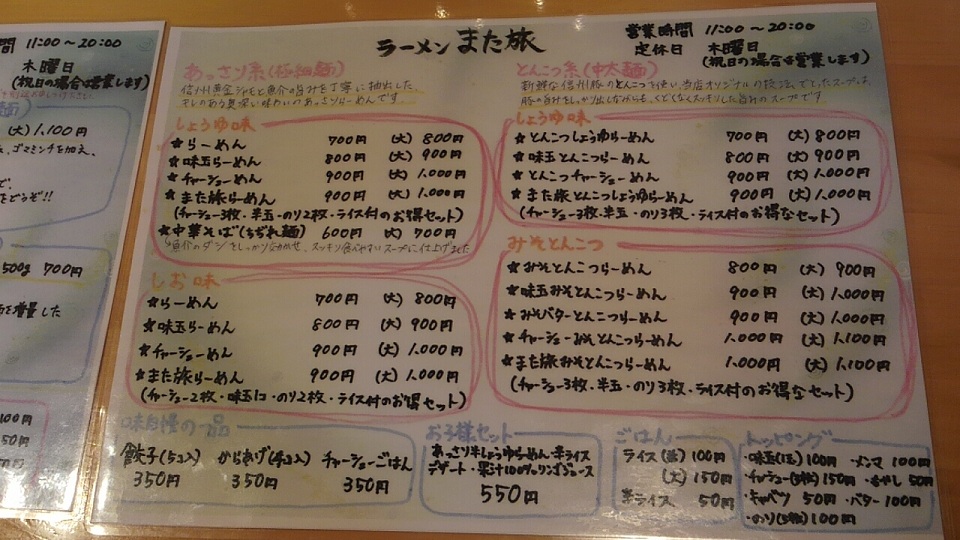 間 11:00～20:00
木曜日
(祝日の場合は営業します)
(大) 1,100円
、ゴマミンチを加え、
で、
をどうぞ!!
500g 700円
を増量した
100円
50円
50円
ラーメン また旅
営業時間 11:00～20:00
定休日 木曜日
(祝日の場合は営業します)
あっさり系(極細麺)
信州黄金シャモと魚介の旨みを丁寧に抽出した、
キレのある奥深い味わいのあっさりらーめんです。
しょうゆ味
★らーめん 700円 (大) 800円
★味玉らーめん 800円 (大) 900円
★チャーシューめん 900円 (大) 1,000円
★また旅らーめん 900円 (大) 1,000円
(チャーシュー3枚・半玉・のり2枚・ライス付のお得セット)
★中華そば(ちぢれ麺) 600円 大) 700円
魚介のダシをしっかりきかせ、スッキリ食べやすいスープに仕上げました
しお味
★らーめん 700円 (大) 800円
★味玉らーめん 800円 (大) 900円
★チャーシューめん 900円 (大) 1,000円
★また旅らーめん 900円 (大) 1,000円
(チャーシュー2枚・味玉1コ・のり2枚・ライス付のお得セット)
とんこつ系(中太麺)
新鮮な信州豚のとんこつを使い、当店オリジナルの技法でとったスープは、
豚の旨みをしっかり出しながらも、くどくなくスッキリした旨みのスープです
しょうゆ味
★とんこつしょうゆらーめん 700円 (大) 800円
★味玉とんこつらーめん 800円 (大) 900円
★とんこつチャーシューめん 900円 (大) 1,000円
★また旅とんこつしょうゆらーめん 900円 (大) 1,000円
(チャーシュー3枚・半玉・のり3枚・ライス付のお得なセット)
みそとんこつ
★みそとんこつらーめん 800円 (大) 900円
★味玉みそとんこつらーめん 900円 (大) 1,000円
★みそバターとんこつらーめん 900円 (大) 1,000円
★チャーシューみそとんこつらーめん 1,000円 (大) 1,100円
★また旅みそとんこつらーめん 1,000円 (大) 1,100円
(チャーシュー3枚・半玉・のり3枚・ライス付のお得なセット)
味自慢の一品
餃子(5コ入) からあげ(4コ入) チャーシューごはん
350円 350円 350円
お子様セット
あっさり半しょうゆらーめん・半ライス
デザート・果汁100%リンゴジュース
550円
ごはん
ライス(並) 100円
(大) 150円
半ライス 50円
トッピング
・味玉(1玉) 100円 ・メンマ 100円
・チャーシュー(3枚) 150円 ・もやし 50円
・キャベツ 50円 ・バター 100円
・のり(5枚) 100円